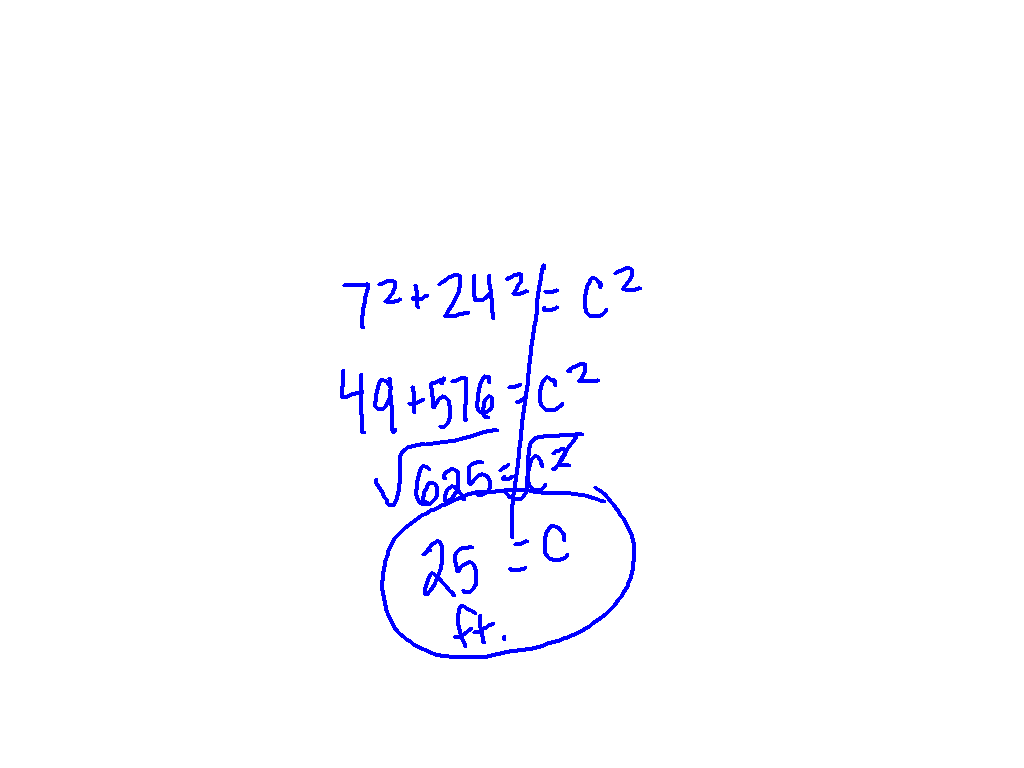 7² + 24² = c²
49 + 576 = c²
√625 = √c²
25 = c
ft.